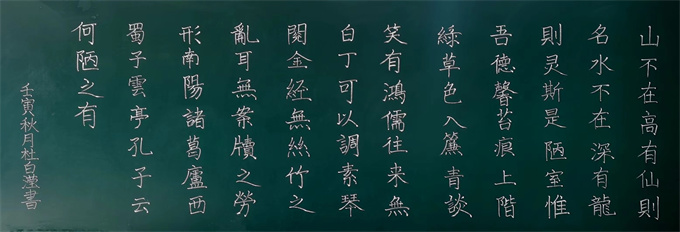 山不在高有仙則
名水不在深有龍
則灵斯是陋室惟
吾德馨苔痕上階
綠草色入簾青談
笑有鴻儒往来無
白丁可以調素琴
閱金経無絲竹之
亂耳無案牘之勞
形南陽諸葛廬西
蜀子雲亭孔子云
何陋之有
壬寅秋月杜白瀅書